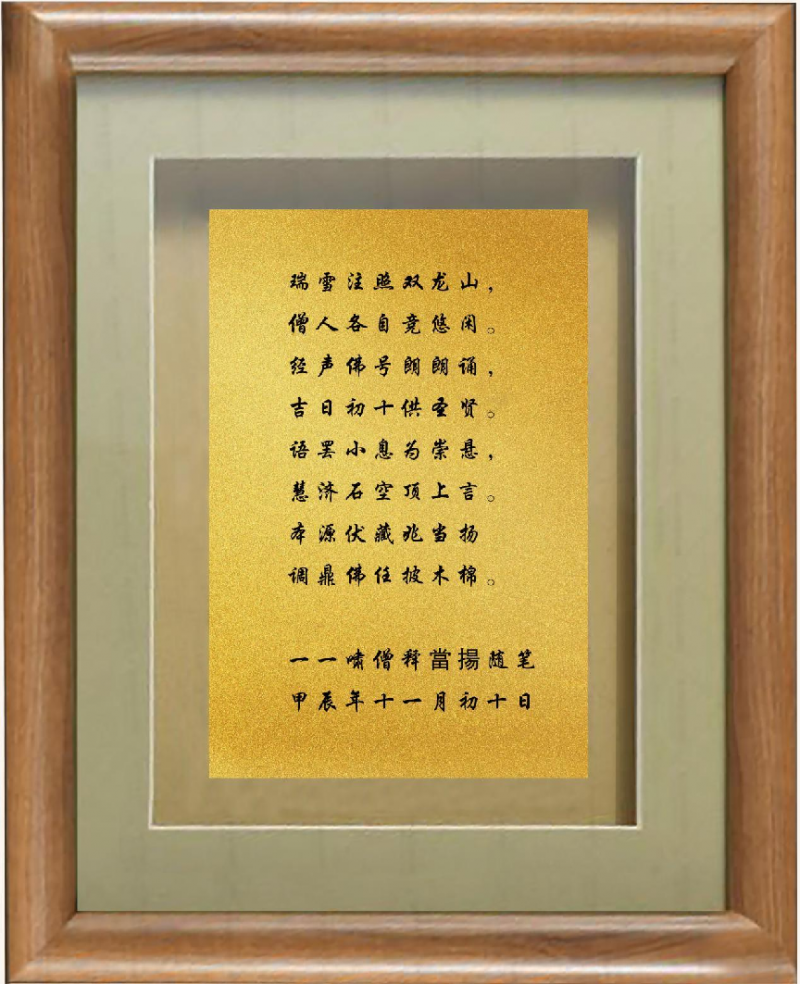 瑞雪注照双龙山，
僧人各自竞悠闲。
经声佛号朗朗诵，
吉日初十供圣贤。
语罢小息为崇悬，
慧济石空顶上言。
本源伏藏兆当扬
调鼎佛任披木棉。
一一啸僧释當揚随笔
甲辰年十一月初十日